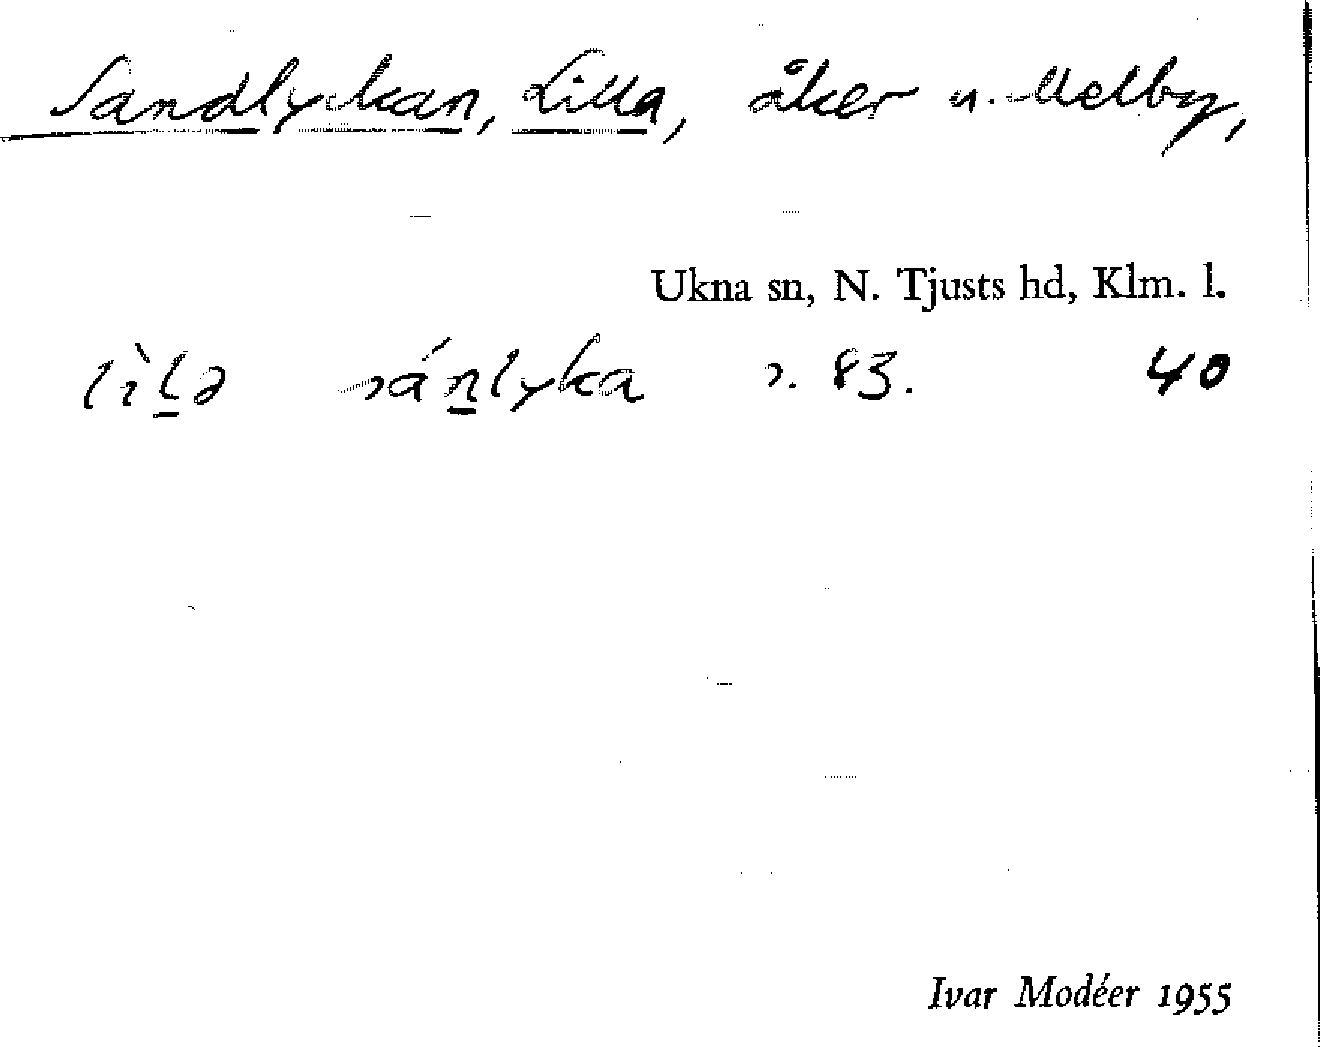 Sandlyckan, Lilla, åker u. Melby,
Ukna sn, N. Tjusts hd, Klm. l.
lìl̲ə sán̲lyka s. 83. 40
Ivar Modéer 1955